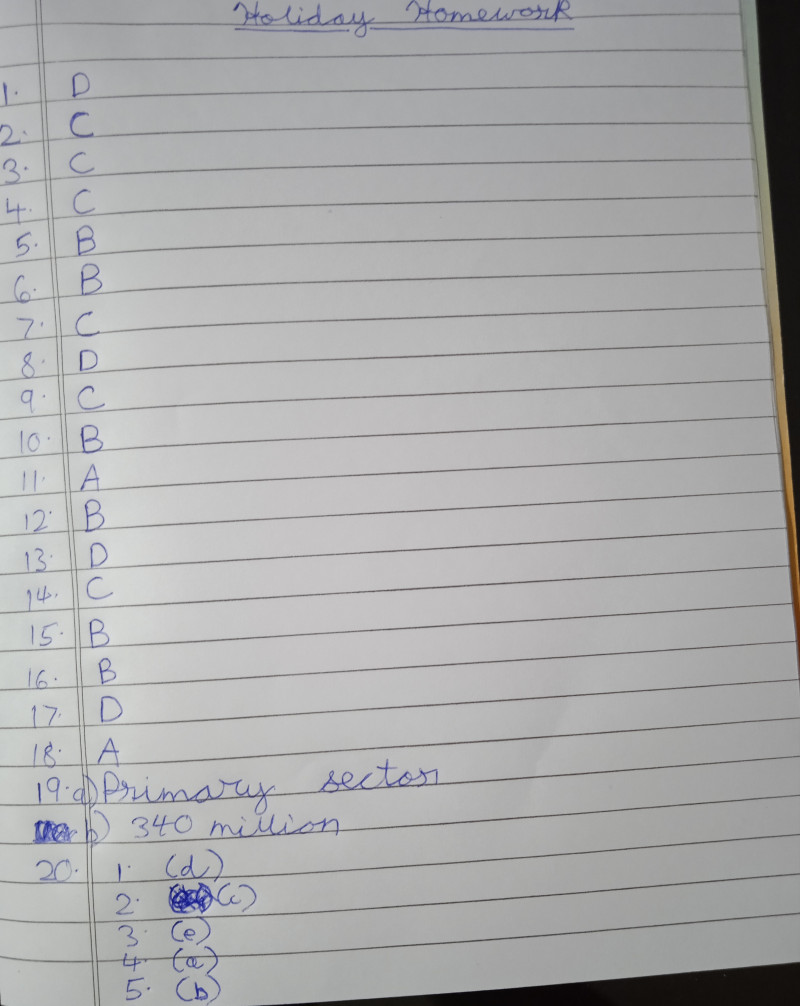 Holiday Homework
1. D
2. C
3. C
4. C
5. B
6. B
7. C
8. D
9. C
10. B
11. A
12. B
13. D
14. C
15. B
16. B
17. D
18. A
19. a) Primary sector
b) 340 million
20. 1. (d)
2. (c)
3. (e)
4. (a)
5. (b)